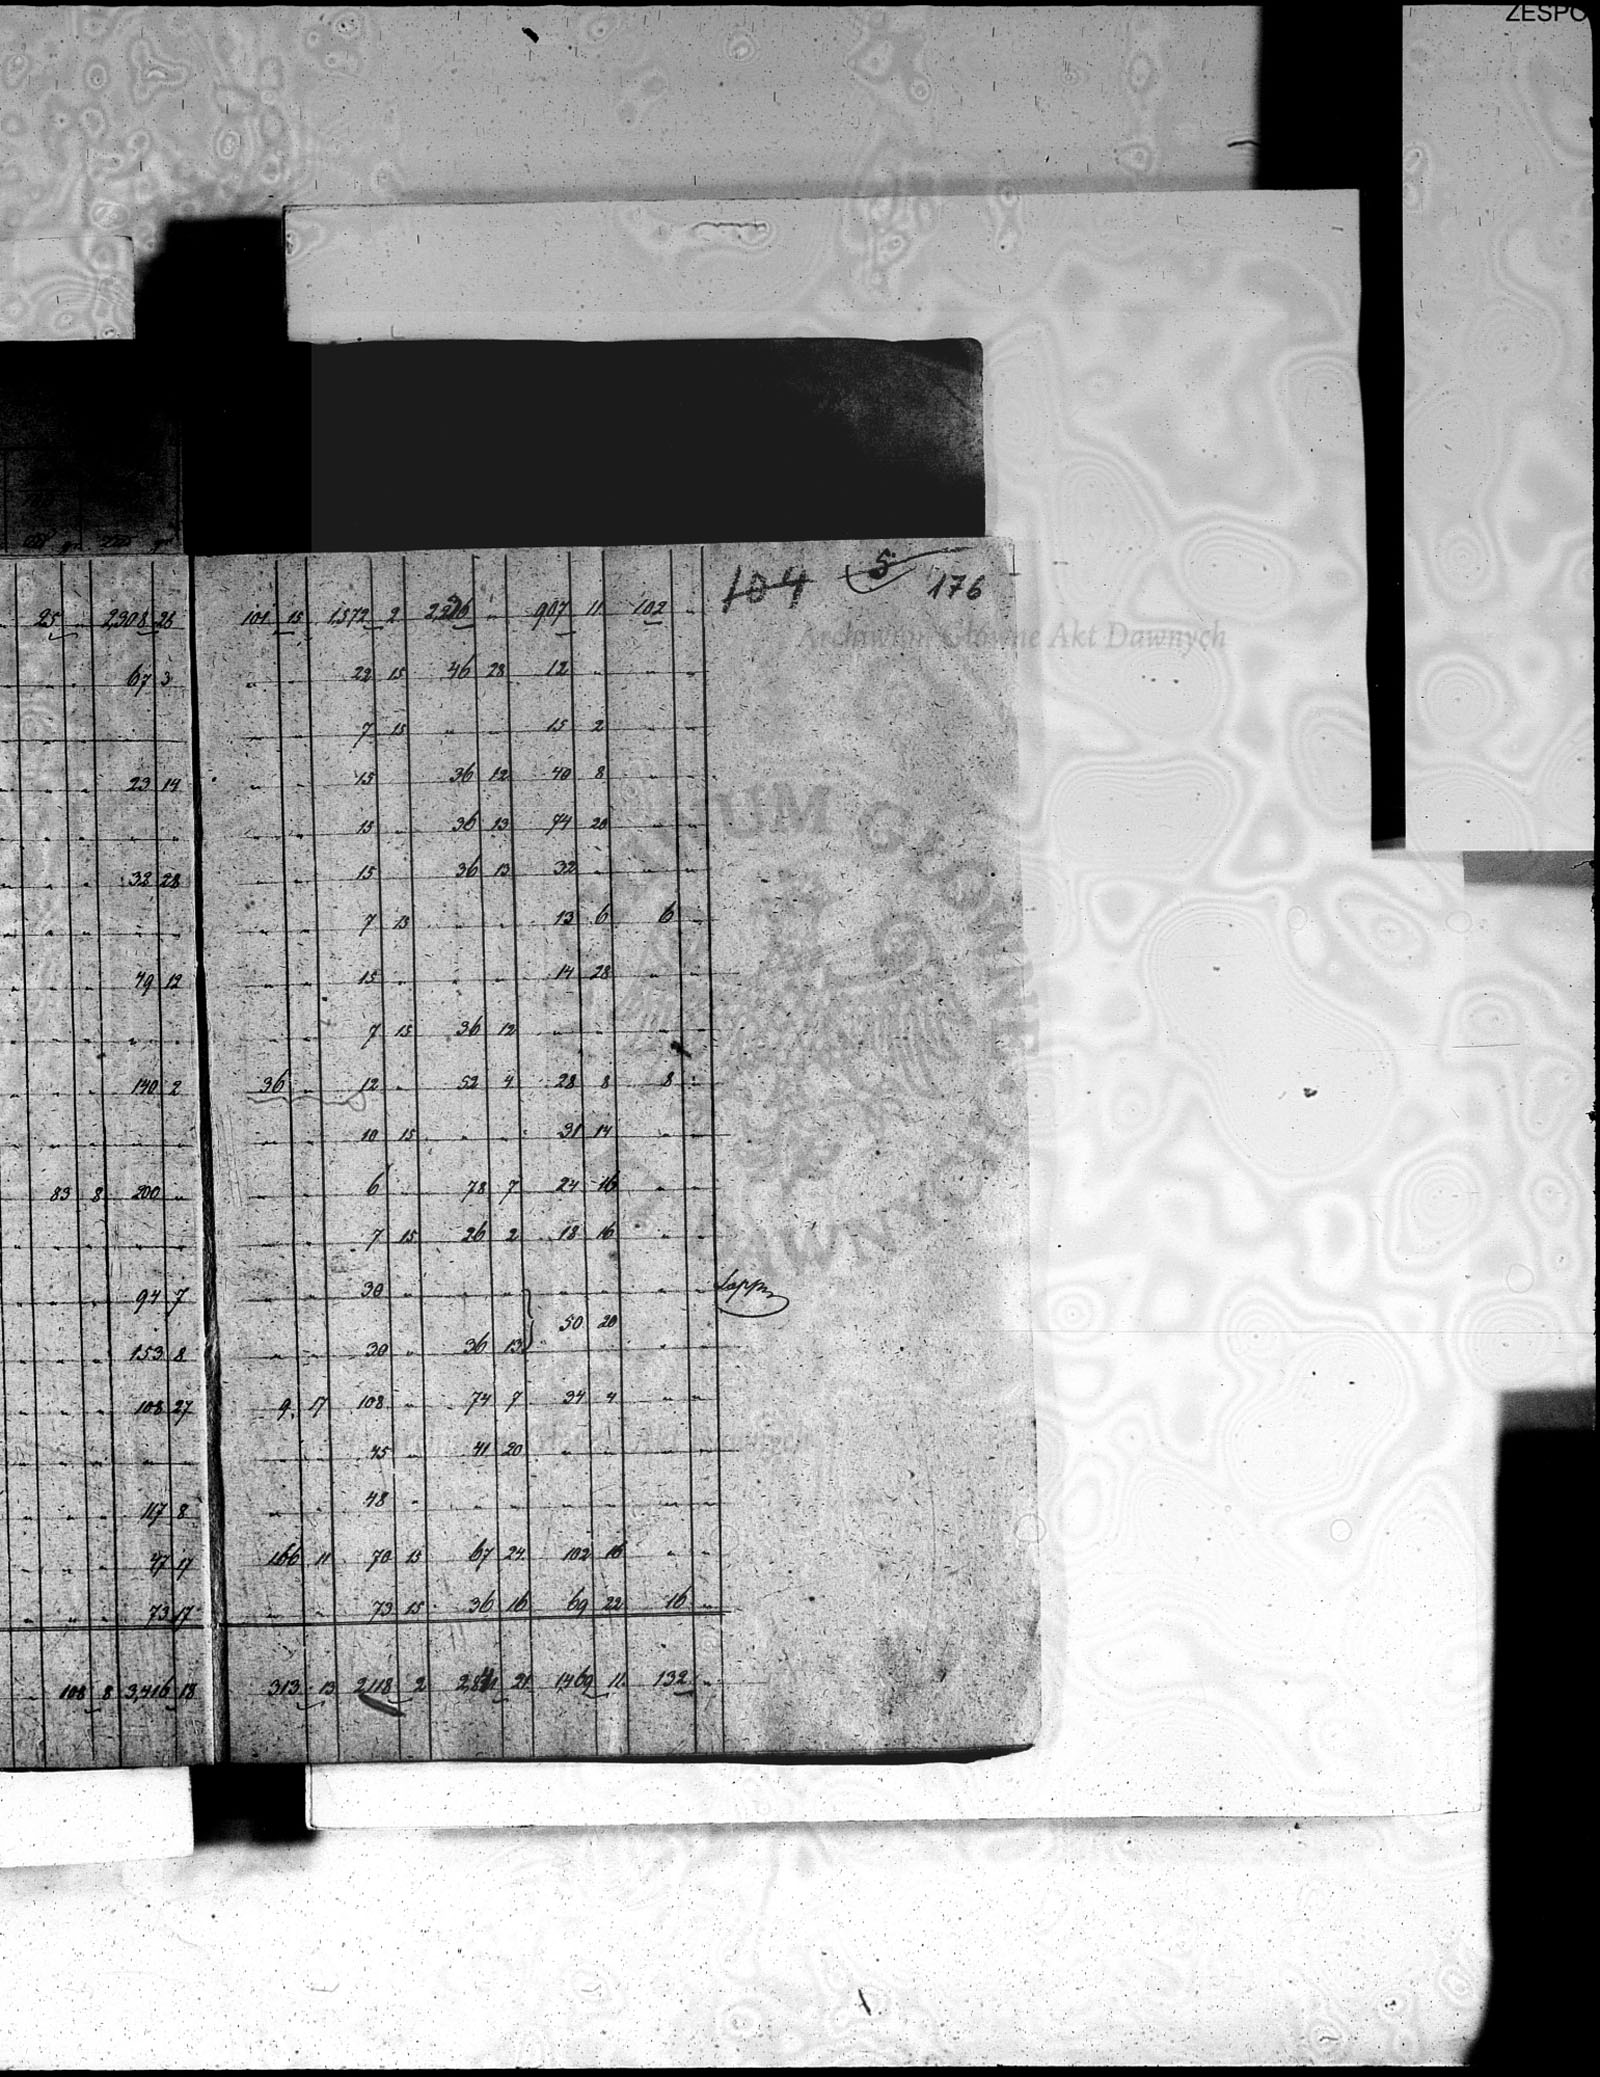 ZESPO
104 5 176
25 " 2,308 26 101 15 1,572 2 2,226 " 907 11 102 "
Archiwum Główne Akt Dawnych
67 3 " " 22 15 46 28 12 " " "
" " 7 15 " " 15 2
23 14 " " 15 36 12 40 8 " "
" " 15 " 36 13 74 20 " "
32 28 " " 15 36 13 32 " " "
" " 7 15 " " 13 6 6 "
49 12 " " 15 " " " 14 28 " "
" " 7 15 36 12 " " " "
140 2 36 " 12 " 52 4 28 8 8 "
" " 10 15 " " 31 14 " "
83 8 200 " " " 6 " 78 7 24 16 " "
" " 7 15 26 2 18 16 " "
94 7 " " 30 " " " " " " "
50 20
153 8 " " 30 " 36 13 " "
108 27 9 17 108 " 74 7 34 4 " "
" " 45 " 41 20 " " " "
117 8 " " 48 " " " " " " "
47 17 166 11 70 15 67 24 102 16 " "
73 17 " " 73 15 36 16 69 22 16 "
108 8 3,416 18 313 13 2,118 2 21 1,469 11 132 "